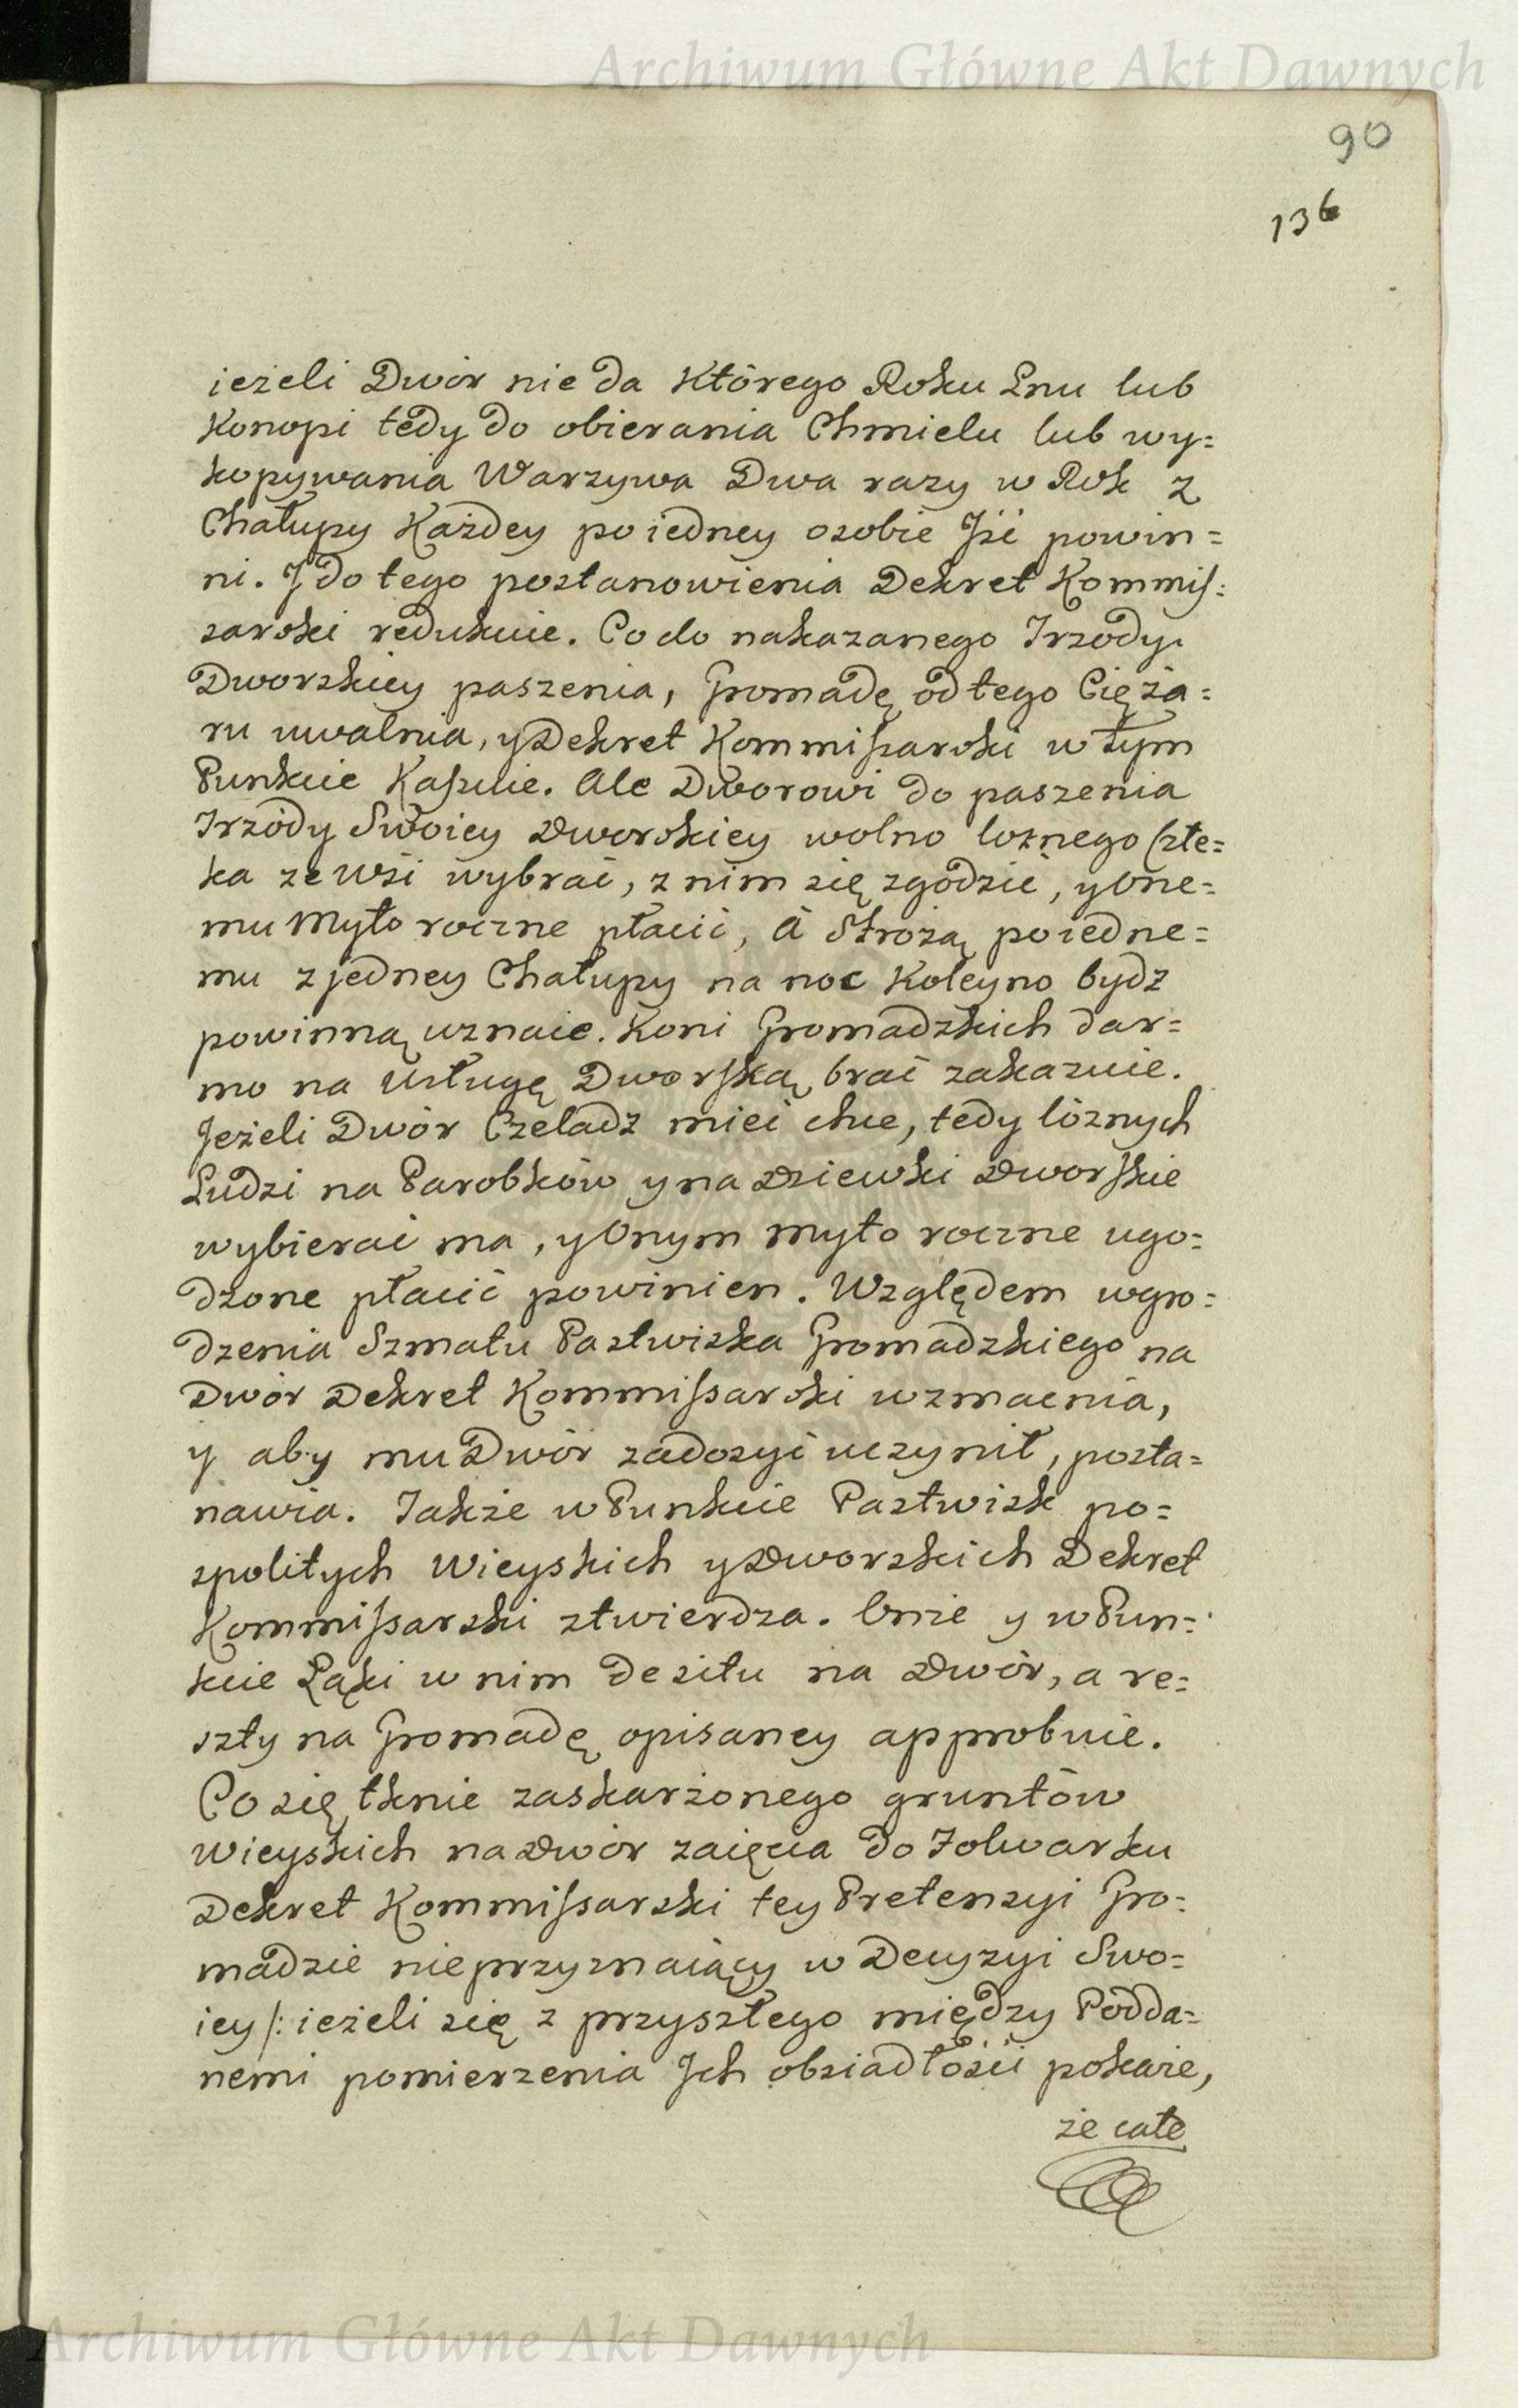 Archiwum Główne Akt Dawnych
90
136
ieżeli Dwór nie da Którego Roku Lnu lub
Konopi tedy do obierania Chmielu lub wy=
kopywania Warzywa Dwa razy w Rok z
Chałupy Każdey po iedney osobie Iść powin=
ni. I do tego postanowienia Dekret Kommis=
sarski redukuie. Co do nakazanego Trzody
Dworskiey paszenia, Gromadę od tego Cięża=
ru uwalnia, y Dekret Kommissarski w tym
Punkcie Kassuie. Ale Dworowi do paszenia
Trzody Swoiey Dworskiey wolno loznego Człe=
ka ze Wsi wybrać, z nim się zgodzić, y One=
mu Myto roczne płacić, á Strożą po iedne=
mu z jedney Chałupy na noc Koleyno bydz
powinną uznaie. Koni Gromadzkich dar=
mo na Usługę Dworską brać zakazuie.
Jeżeli Dwór Czeladz mieć chce, tedy lóznych
Ludzi na Parobków y na Dziewki Dworskie
wybierać ma, y Onym myto roczne ugo=
dzone płacić powinien. Względem wgro=
dzenia Szmatu Pastwiska Gromadzkiego na
Dwór Dekret Kommissarski wzmacnia,
y aby mu Dwór zadosyć uczynił, posta=
nawia. Także w Punkcie Pastwisk po=
spolitych Wieyskich y Dworskich Dekret
Kommissarski ztwierdza. Onże y w Pun=
kcie Łąki w nim de situ na Dwór, a re=
szty na Gromadę opisaney approbuie.
Co się tknie zaskarżonego gruntów
Wieyskich na Dwór zaięcia do Folwarku
Dekret Kommissarski tey Pretensyi Gro=
madzie nieprzyznaiący w Decyzyi Swo=
iey /: ieżeli się z przyszłego między Podda=
nemi pomierzenia Ich obsiadłości pokaże,
że całe
Archiwum Główne Akt Dawnych